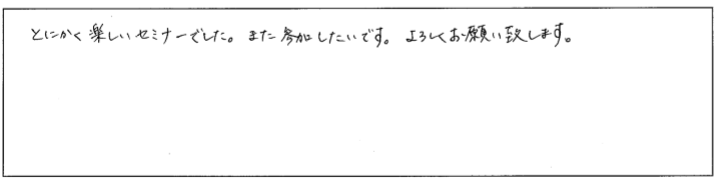 とにかく楽しいセミナーでした。また参加したいです。よろしくお願い致します。